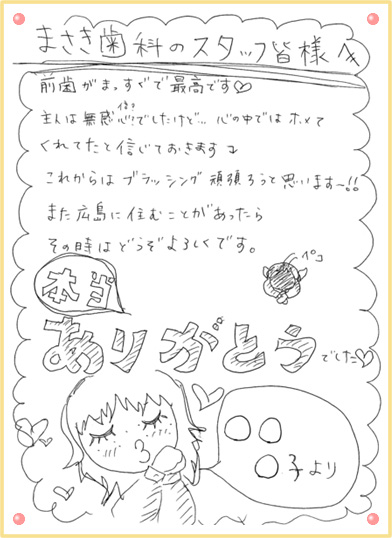 まさき歯科のスタッフ皆様へ
前歯がまっすぐで最高です♡
主人は無感心?でしたけど… 心の中ではホメて
くれてたと信じておきます
これからはブラッシング頑張ろうと思います~!!
また広島に住むことがあったら
その時はどうぞよろしくです。
ペコ
本当
ありがとう
でした♡
○○
○子より